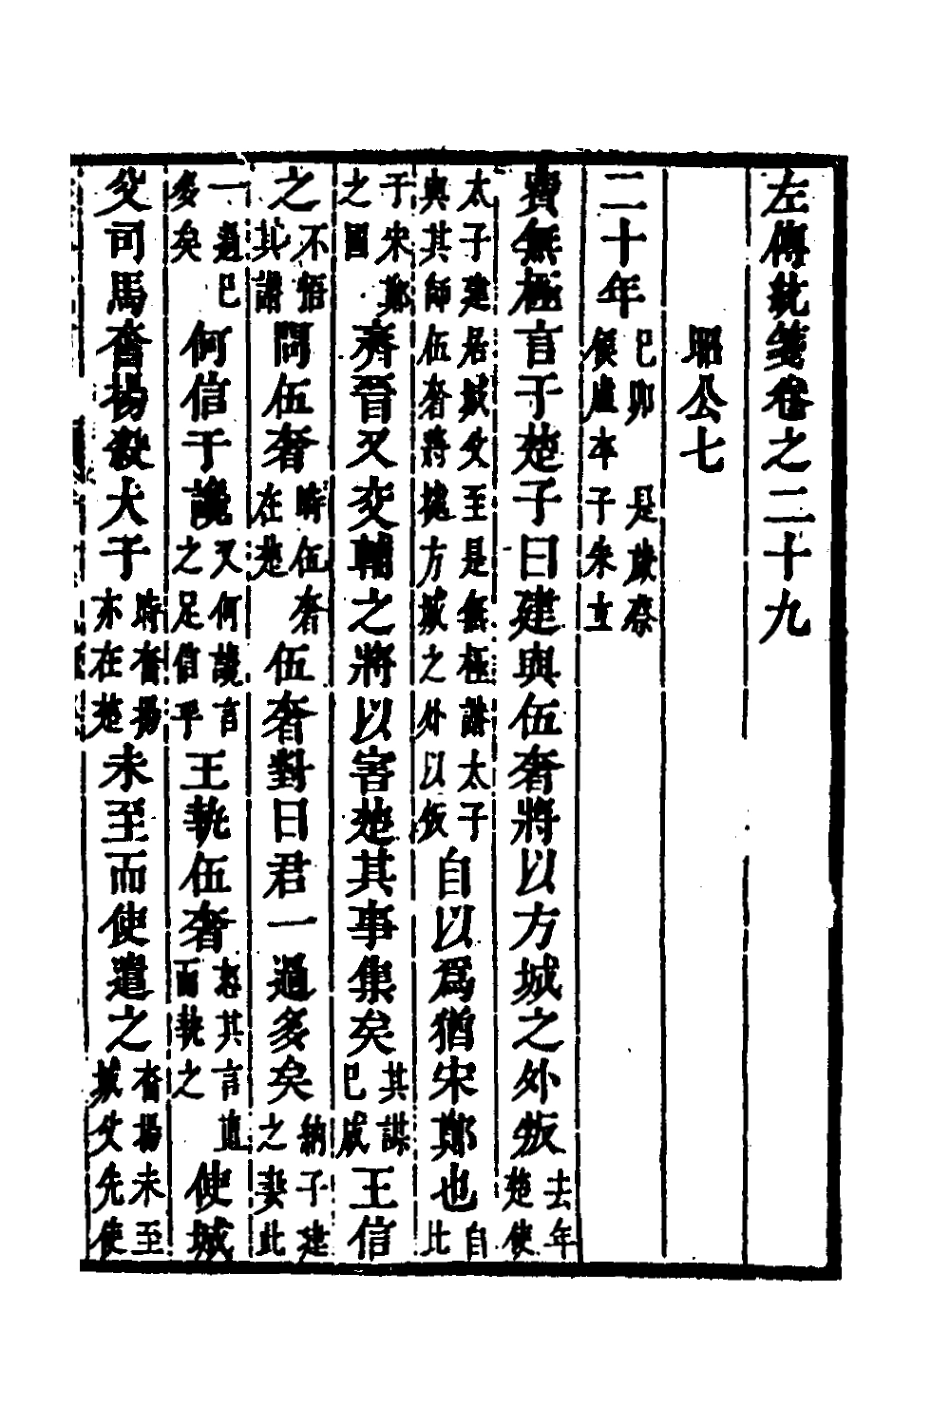 左傳統箋卷之二十九
昭公七
二十年己卯是歲蔡侯廬卒子朱立
費無極言于楚子曰建與伍奢將以方城之外叛去年楚使
太子建居城父至是無極譖太子與其師伍奢將據方城之外以叛自以爲猶宋鄭也自比
于宋鄭之國齊晉又交輔之將以害楚其事集矣其謀已成王信
之不悟其譖問伍奢時伍奢在楚伍奢對曰君一過多矣納子建之妻此
一過已多矣何信于讒又何讒言之足信乎王執伍奢怒其言直而執之使城
父司馬奮揚殺大子時奮揚亦在楚未至而使遣之奮揚未至城父先使